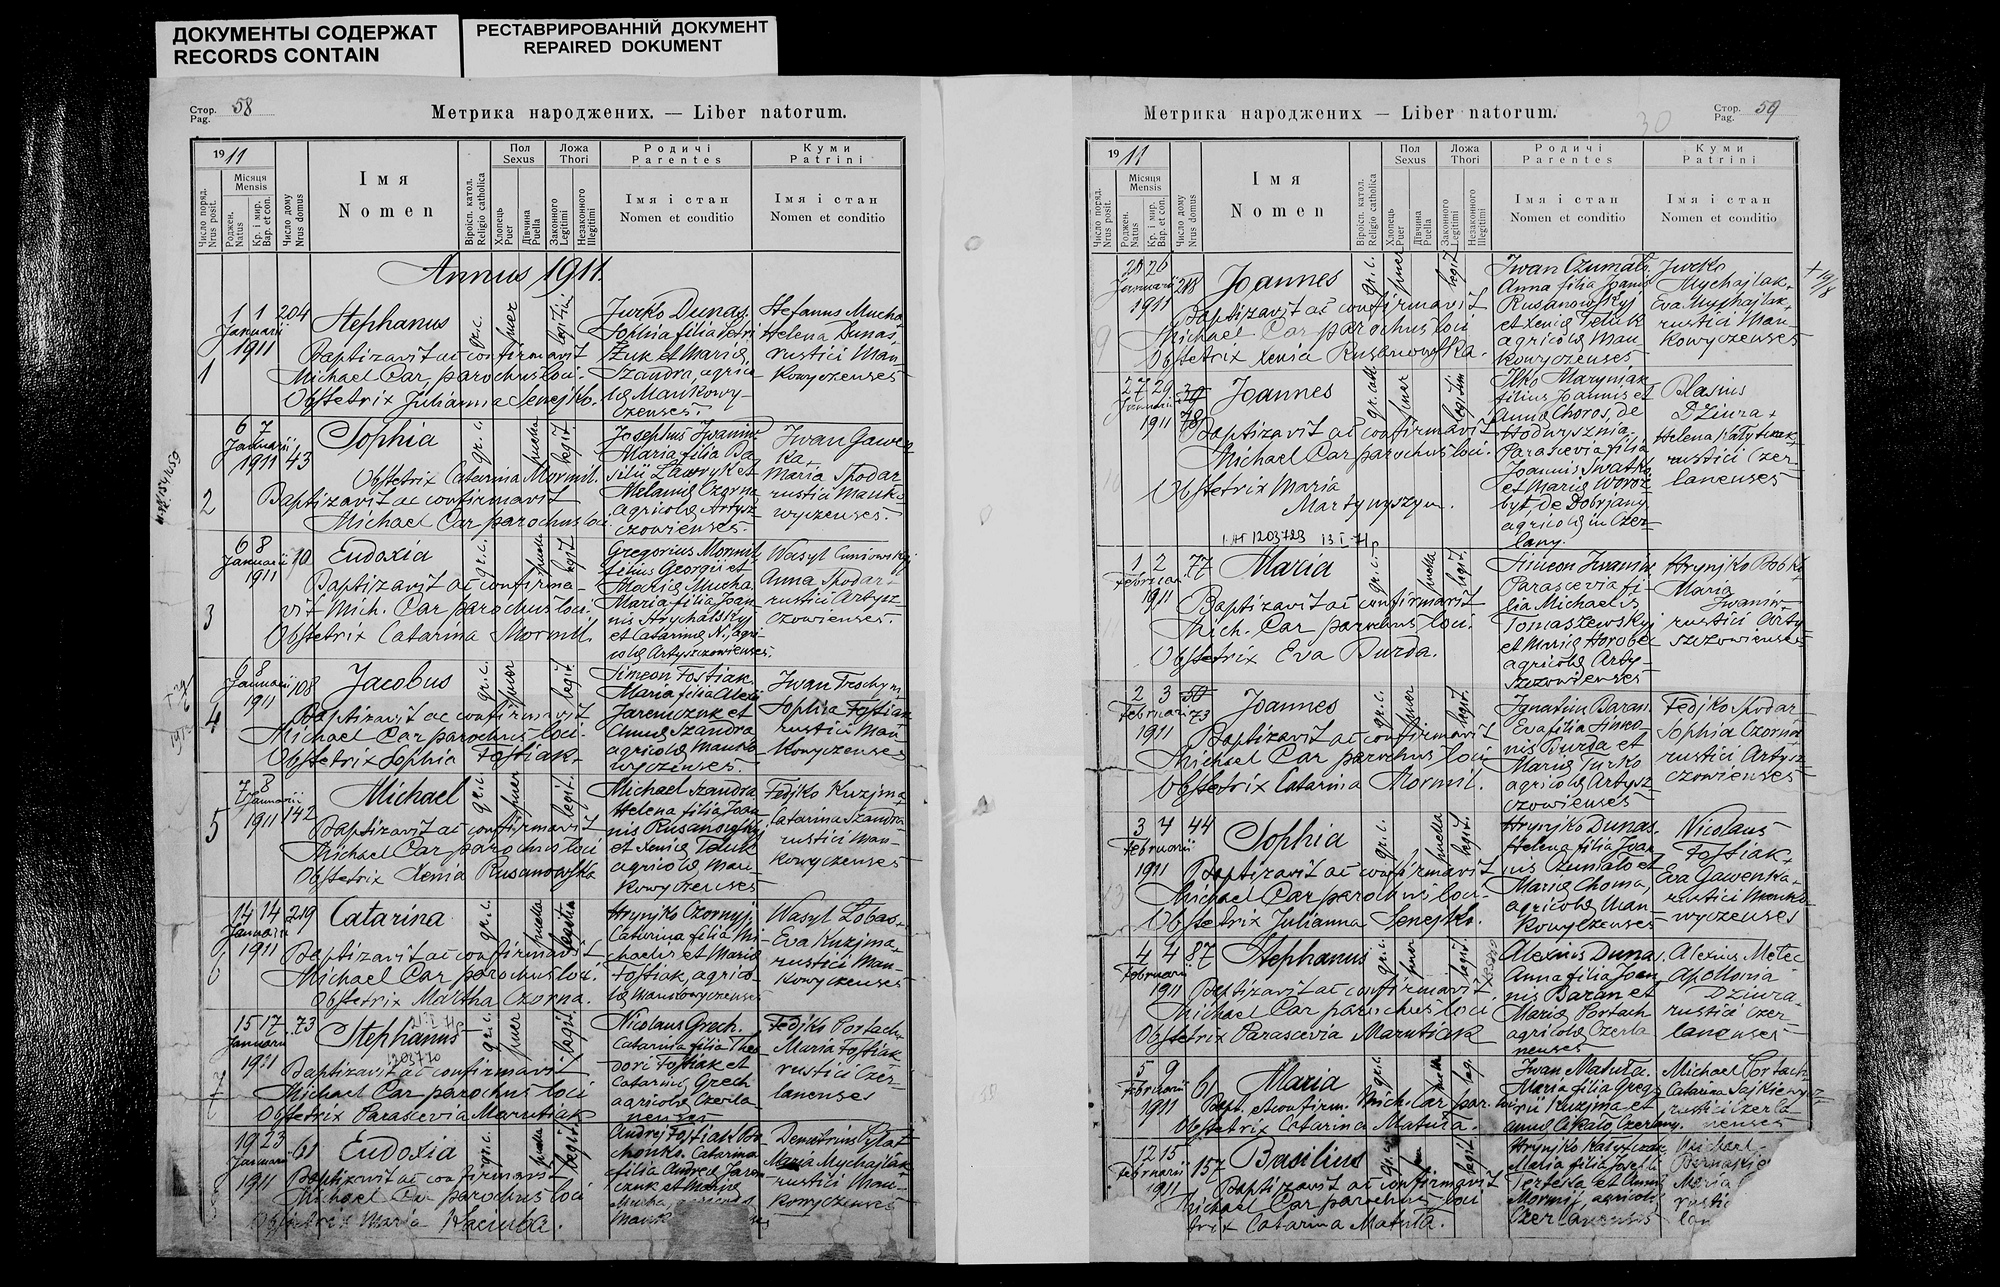 ДОКУМЕНТЫ СОДЕРЖАТ
RECORDS CONTAIN
РЕСТАВРИРОВАННІЙ ДОКУМЕНТ
REPAIRED DOKUMENT
Стор. Pag. 58
Метрика народжених. — Liber natorum.
1911
Місяця Mensis
Число поряд. Nrus posit.
Роджен. Natus
Кр. і мир. Bap. et con.
Число дому Nrus domus
Імя
Nomen
Віроісп. катол. Religio catholica
Пол Sexus
Хлопець Puer
Дівчина Puella
Ложа Thori
Законного Legitimi
Незаконного Illegitimi
Родичі
Parentes
Імя і стан
Nomen et conditio
Куми
Patrini
Імя і стан
Nomen et conditio
Annus 1911.
1
1 1 204
Januarii
1911
Stephanus
gr. c.
puer
Baptizavit ac confirmavit
Michael Car, parochus loci.
Obstetrix Julianna Senejko.
Jurko Dunas.
Sophia filia Petri
Szandra, agrico
lae Mankowy-
czenses.
Stefanus Mucha
Helena Dunas,
rustici Man-
kowyczenses
2
6 7
Januarii
1911 43
Sophia
gr. c.
puella
legit.
Obstetrix Catarina Mormil.
Baptizavit ac confirmavit
Michael Car parochus loci
Maria filia Ba-
silii Ławryk et
Melaniae Czorna
agricolae Artysz-
czowienses.
Iwan Gawen
ka
Maria Spodar
rustici Manko
wyczenses.
3
6 8
Januarii 10
1911
Eudoxia
gr. c.
puella
legit.
Baptizavit ac confirma-
vit Mich. Car parochus loci.
Obstetrix Catarina Mormil.
Gregorius Mormil
filius Georgii et
Mariae Mucha.
Maria filia Joan-
nis Hrychalskyj
et Catarinae N., agri-
colae Artyszczowienses.
Anna Spodar
rustici Artysz-
czowienses.
4
6 8
Januarii 108
1911
Jacobus
gr. c.
puer
legit.
Baptizavit ac confirmavit
Michael Car parochus loci.
Obstetrix Sophia Fostiak.
Simeon Fostiak.
Maria filia Alexii
Jaremczuk et
Annae Szandra
agricolae Manko
wyczenses.
Sophia Fostiak
rustici Man
kowyczenses
5
7 8
Januarii
1911 142
Michael
gr. c.
puer
legit.
Baptizavit ac confirmavit
Michael Car parochus loci
Obstetrix Xenia Rusanowska
Michael Szandra
Helena filia Joan
nis Rusanowskyj
et Xeniae Teluk
agricolae Man-
kowyczenses
Fedjko Kuzjma
Catarina Szandra
rustici Man-
kowyczenses
6
14 14 219
Januarii
1911
Catarina
gr. c.
puella
Baptizavit ac confirmavit
Michael Car parochus loci.
Obstetrix Martha Czorna.
Hrynjko Czornyj.
Catarina filia Mi-
chaelis et Mariae
Fostiak, agrico-
lae Mankowyczenses
Wasyl Łobas
Eva Kuzjma
rustici Man-
kowyczenses
7
15 17 73
Januarii
1911
Stephanus
gr. c.
puer
legit.
Baptizavit ac confirmavit
Michael Car parochus loci
Obstetrix Parascevia Marutiak
Nicolaus Grech.
Catarina filia Theo
dori Fostiak et
Catarinae Grech
agricolae Czerla-
nenses
Fedjko Portach
Maria Fostiak
rustici Czer-
lanenses
19 23 61
Januarii
1911
Eudoxia
gr. c.
puella
legit.
Baptizavit ac confirmavit
Michael Car parochus loci
Obstetrix Maria Haciuba.
Andrej Fostiak
Catarina
filia Andreae Jarem
czuk et Mariae
Mucha
Mank
Demetrius Pytat
Maria Mychajlak
rustici Man-
kowyczenses
Метрика народжених — Liber natorum.
30
Стор. Pag. 59
1911
Місяця Mensis
Число поряд. Nrus posit.
Роджен. Natus
Кр. і мир. Bap. et con.
Число дому Nrus domus
Імя
Nomen
Віроісп. катол. Religio catholica
Пол Sexus
Хлопець Puer
Дівчина Puella
Ложа Thori
Законного Legitimi
Незаконного Illegitimi
Родичі
Parentes
Імя і стан
Nomen et conditio
Куми
Patrini
Імя і стан
Nomen et conditio
9
25 26
Januarii 218
1911
Joannes
gr. c.
puer
legit.
Baptizavit ac confirmavit
Michael Car parochus loci
Obstetrix Xenia Rusanowska.
Iwan Czumało.
Anna filia Joannis
Rusanowskyj
et Xeniae Teluk
agricolae Man
kowyczenses
Jurko
Mychajlak
Eva Mychajlak
rustici Man-
kowyczenses
10
27 29
Januarii
1911 78
Joannes
gr. cath.
puer
Baptizavit ac confirmavit
Michael Car parochus loci.
Obstetrix Maria
Martynyszyn.
Ilko Maryniak
filius Joannis et
Anna Choros, de
Hodwysznia.
Parascevia filia
Joannis Swatko
et Mariae Woroz
byt de Dobrjany
agricolae in Czer-
lany.
Blasius
Dziura
rustici Czer-
lanenses
1203723 13 I 71
1 2 77
Februar.
1911
Maria
gr. c.
puella
legit.
Baptizavit ac confirmavit
Mich. Car parochus loci.
Obstetrix Eva Burda.
Simeon Iwaniw
Parascevia fi-
lia Michaelis
Tomaszewskyj
et Mariae Horobec
agricolae Arty-
szczowienses
Hrynjko Bobko
Maria
Iwaniw
rustici Arty-
szczowienses
2 3
Februarii 73
1911
Joannes
gr. c.
puer
legit.
Baptizavit ac confirmavit
Michael Car parochus loci
Obstetrix Catarina Mormil.
Ignatius Baran
Eva filia Simeo-
nis Burda et
Mariae Jurko
agricolae Artysz-
czowienses
Fedjko Spodar
Sophia Czorna
rustici Artysz-
czowienses
13
3 4 44
Februarii
1911
Sophia
gr. c.
puella
legit.
Baptizavit ac confirmavit
Michael Car parochus loci.
Obstetrix Julianna Senejko.
Hrynjko Dunas.
Helena filia Joan
nis Czumało et
Mariae Choma,
agricolae Man-
kowyczenses
Nicolaus
Fostiak
Eva Gawenka
rustici Manko-
wyczenses
14
4 4 87
Februarii
1911
Stephanus
gr. c.
puer
legit.
Baptizavit ac confirmavit
Michael Car parochus loci.
Obstetrix Parascevia Marutiak
Alexius Dunas.
Anna filia Joan
nis Baran et
Mariae Portach
agricolae Czerla
nenses
Alexius Metec
Apollonia
Dziura
rustici Czer-
lanenses
5 9 61
Februarii
1911
Maria
gr. c.
puella
leg.
Bapt. et confirm. Mich. Car par. loci
Obstetrix Catarina Matuła.
Iwan Matuła.
Maria filia Grego
rii Kuzjma et
Annae Cikało Czerlany.
Michael Portach
rustici Czerla
nenses
12 15 157
Februarii
1911
Basilius
gr. c.
puer
legit.
Baptizavit ac confirmavit
Michael Car parochus loci
trix Catarina Matuła.
Maria filia Josephi
Terfeka et Annae
Mormil, agricolae
Czerlanenses
Michael
Maria
rustic
lan